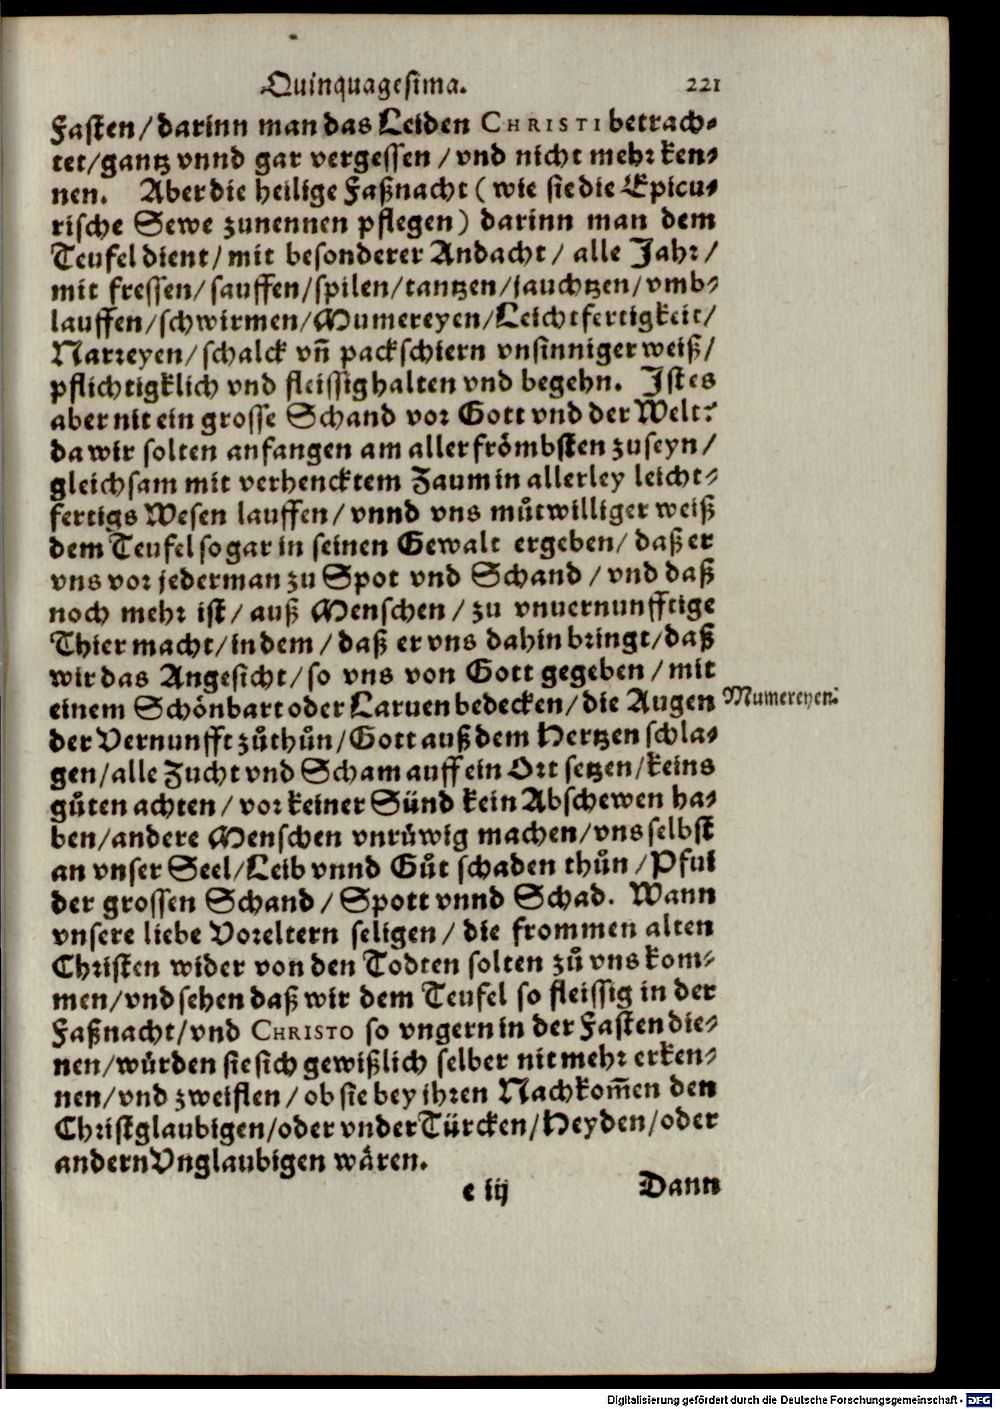 Quinquagesima. 221
Fasten/darinn man das Leiden CHRISTI betrach-
tet/gantz vnnd gar vergessen/vnd nicht mehr ken-
nen. Aber die heilige Faßnacht (wie sie die Epicu-
rische Sewe zunennen pflegen) darinn man dem
Teufel dient/mit besonderer Andacht/alle Jahr/
mit fressen/sauffen/spilen/tantzen/jauchtzen/vmb-
lauffen/schwirmen/Mumereyen/Leichtfertigkeit/
Narreyen/schalck vñ packschiern vnsinniger weiß/
pflichtigklich vnd fleissig halten vnd begehn. Ist es
aber nit ein grosse Schand vor Gott vnd der Welt?
da wir solten anfangen am aller frömbsten zuseyn/
gleichsam mit verhencktem Zaum in allerley leicht-
fertigs Wesen lauffen/vnnd vns muͦtwilliger weiß
dem Teufel so gar in seinen Gewalt ergeben/daß er
vns vor jederman zu Spot vnd Schand/vnd daß
noch mehr ist/auß Menschen/zu vnuernunfftige
Thier macht/in dem/daß er vns dahin bringt/daß
wir das Angesicht/so vns von Gott gegeben/mit
einem Schönbart oder Laruen bedecken/die Augen
Mumereyen.
der Vernunfft zuͦthuͦn/Gott auß dem Hertzen schla-
gen/alle Zucht vnd Scham auff ein Ort setzen/keins
guͦten achten/vor keiner Sünd kein Abschewen ha-
ben/andere Menschen vnrüwig machen/vns selbst
an vnser Seel/Leib vnnd Guͦt schaden thuͦn/Pfui
der grossen Schand/Spott vnnd Schad. Wann
vnsere liebe Voreltern seligen/die frommen alten
Christen wider von den Todten solten zuͦ vns kom-
men/vnd sehen daß wir dem Teufel so fleissig in der
Faßnacht/vnd CHRISTO so vngern in der Fasten die-
nen/würden sie sich gewißlich selber nit mehr erken-
nen/vnd zweiflen/ob sie bey ihren Nachkom̃en den
Christglaubigen/oder vnder Türcken/Heyden/oder
andern Vnglaubigen wären.
e iij Dann
Digitalisierung gefördert durch die Deutsche Forschungsgemeinschaft - DFG